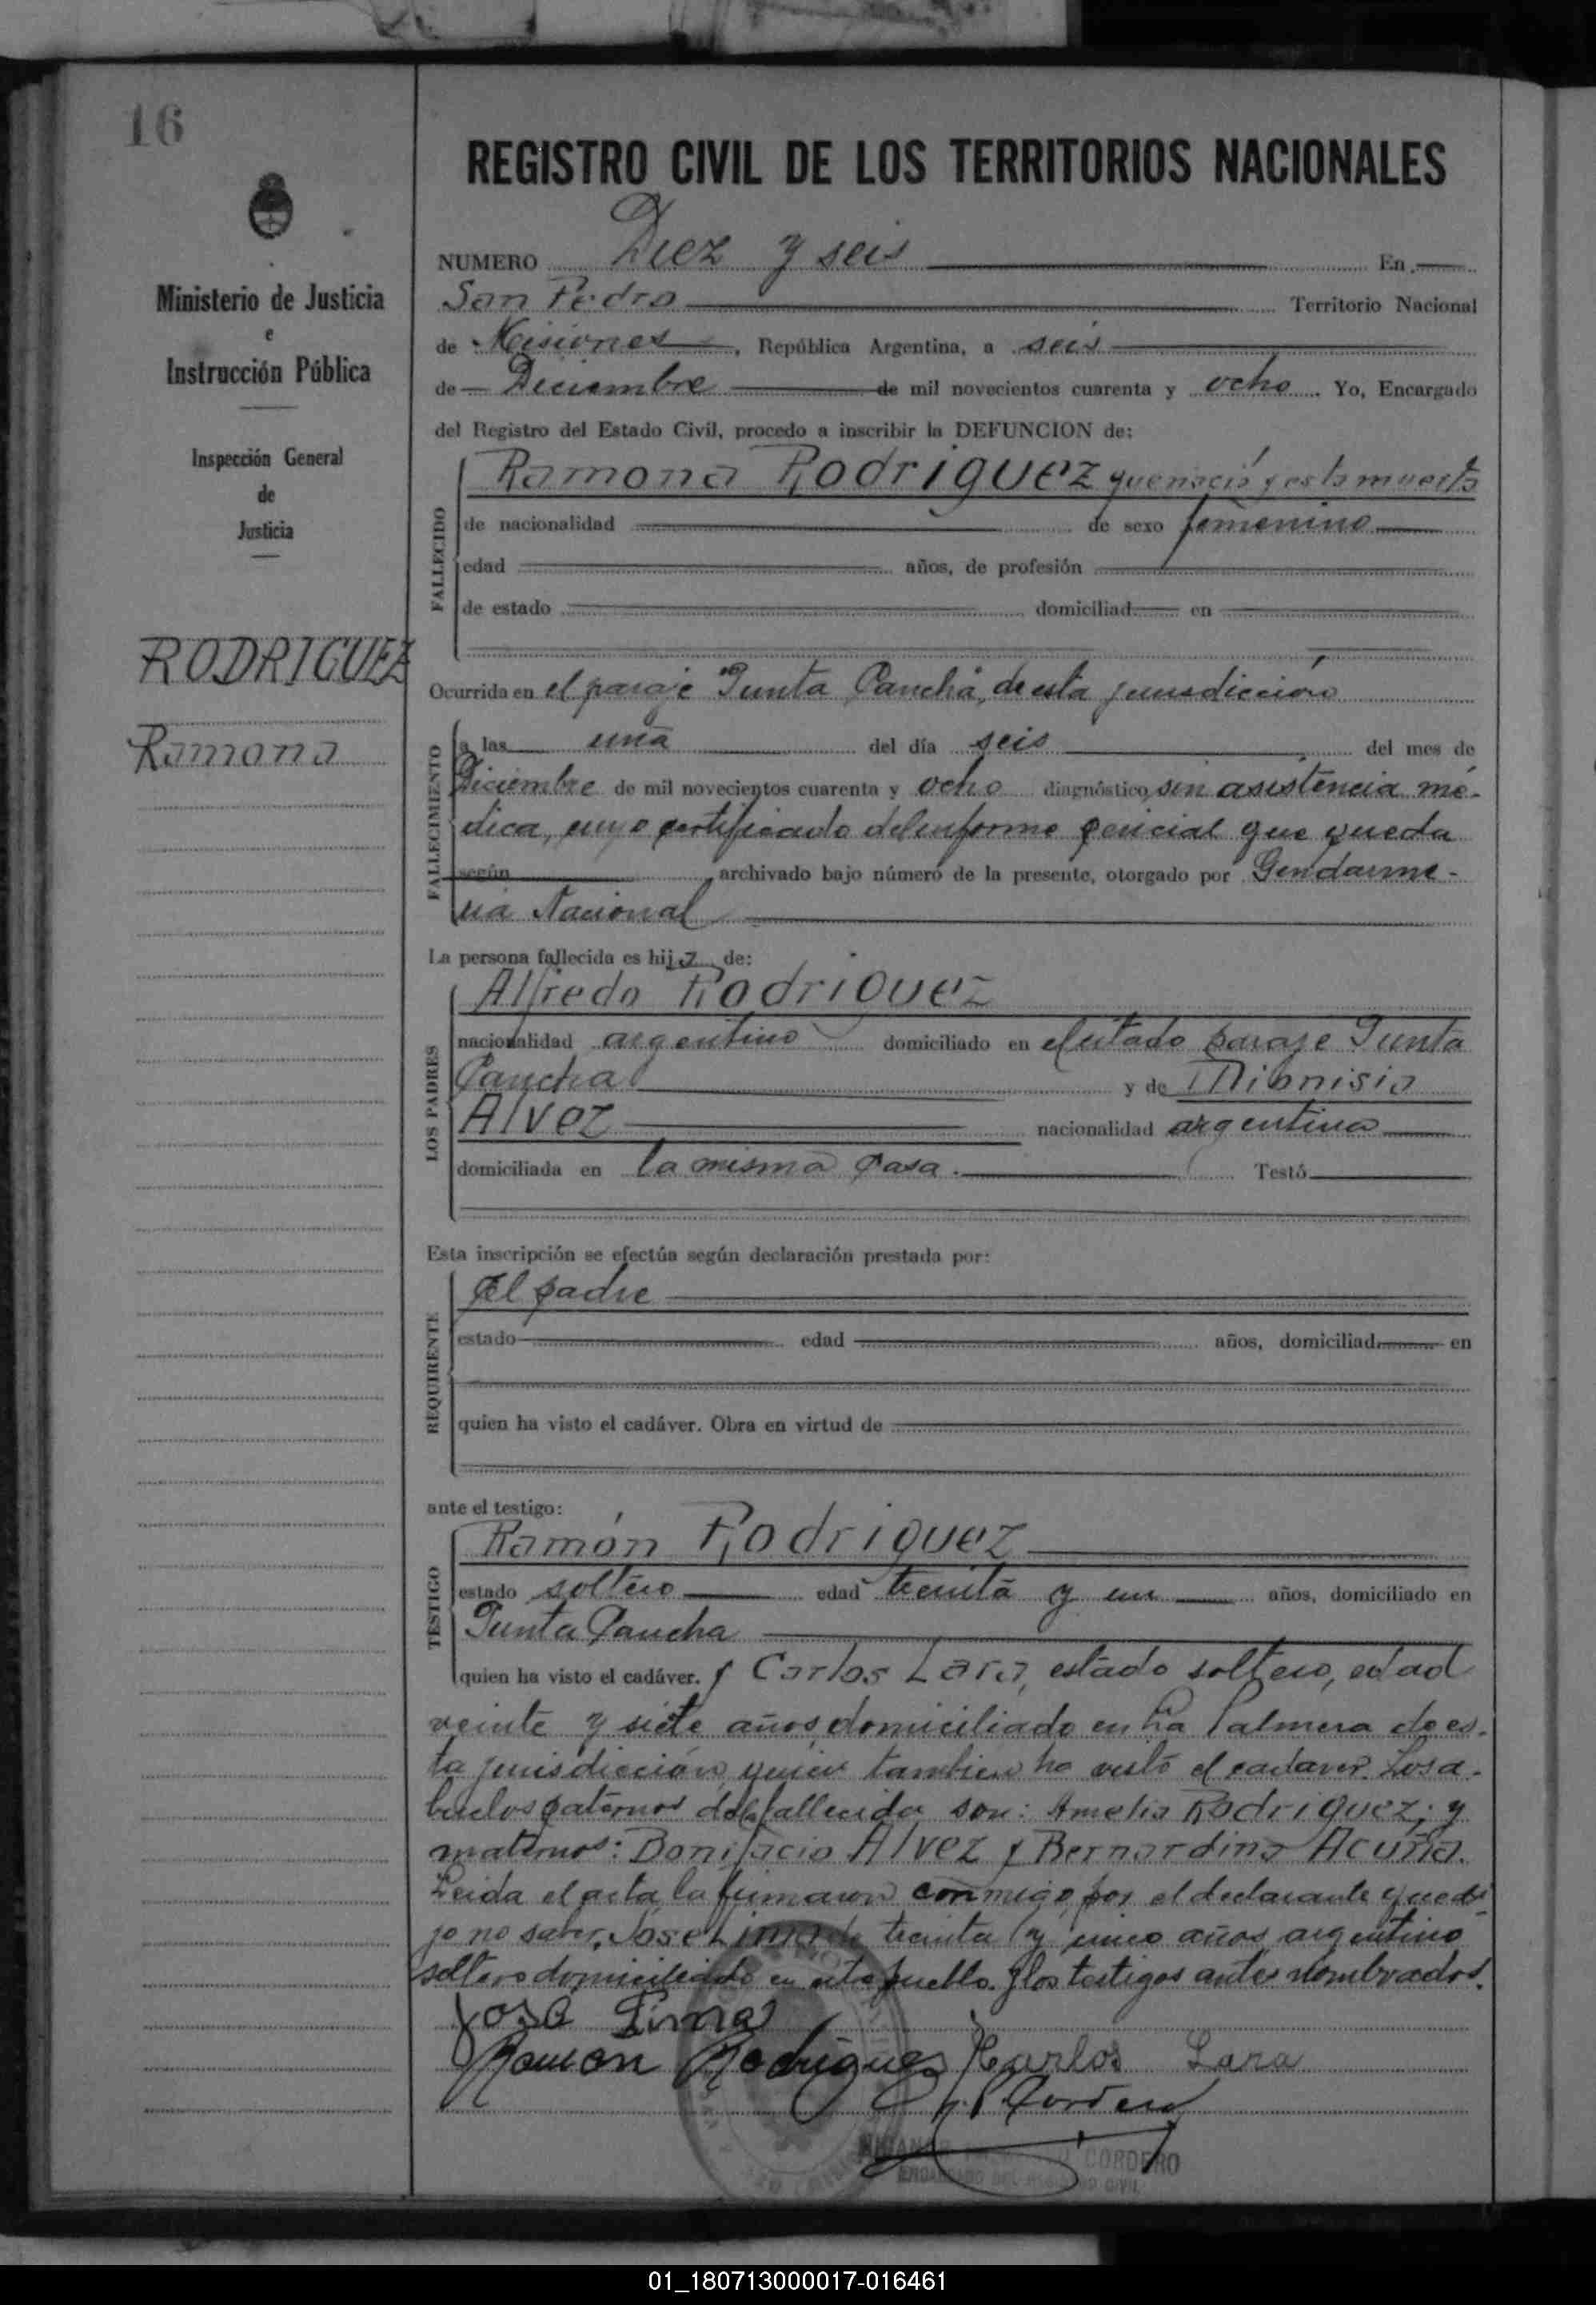 16
REGISTRO CIVIL DE LOS TERRITORIOS NACIONALES
Ministerio de Justicia
e
Instrucción Pública
Inspección General
de
Justicia
RODRIGUEZ
Ramona
NUMERO Diez y seis En
San Pedro Territorio Nacional
de Misiones, República Argentina, a seis
de Diciembre de mil novecientos cuarenta y ocho. Yo, Encargado
del Registro del Estado Civil, procedo a inscribir la DEFUNCION de:
FALLECIDO
Ramona Rodriguez que nació y esta muerta
de nacionalidad de sexo femenino
edad años, de profesión
de estado domiciliad en
Ocurrida en el paraje Punta Pancha, de esta jurisdicción
FALLECIMIENTO
a las una del día seis del mes de
Diciembre de mil novecientos cuarenta y ocho diagnóstico sin asistencia mé-
dica, cuyo certificado del informe pericial que queda
según archivado bajo número de la presente, otorgado por Gendarme-
ria Nacional
La persona fallecida es hija de:
LOS PADRES
Alfredo Rodriguez
nacionalidad argentino domiciliado en el citado paraje Punta
Pancha y de Dionisia
Alvez nacionalidad argentina
domiciliada en la misma casa. Testó
Esta inscripción se efectúa según declaración prestada por:
REQUIRENTE
El padre
estado edad años, domiciliad en
quien ha visto el cadáver. Obra en virtud de
ante el testigo:
TESTIGO
Ramón Rodriguez
estado soltero edad treinta y un años, domiciliado en
Punta Pancha
quien ha visto el cadáver. y Carlos Lara, estado soltero, edad
veinte y siete años domiciliado en La Palmera de es-
ta jurisdicción quien tambien ha visto el cadaver. Los a-
buelos paternos de la fallecida son: Amelia Rodriguez; y
maternos: Bonifacio Alvez y Bernardina Acuña.
Leida el acta la firmaron conmigo por el declarante que di-
jo no saber, José Lima de treinta y cinco años argentino
soltero domiciliado en este pueblo. y los testigos antes nombrados.
José Lima
Ramon Rodriguez Carlos Lara
Cordero
CORDERO
ENCARGADO DEL REGISTRO CIVIL
01_180713000017-016461